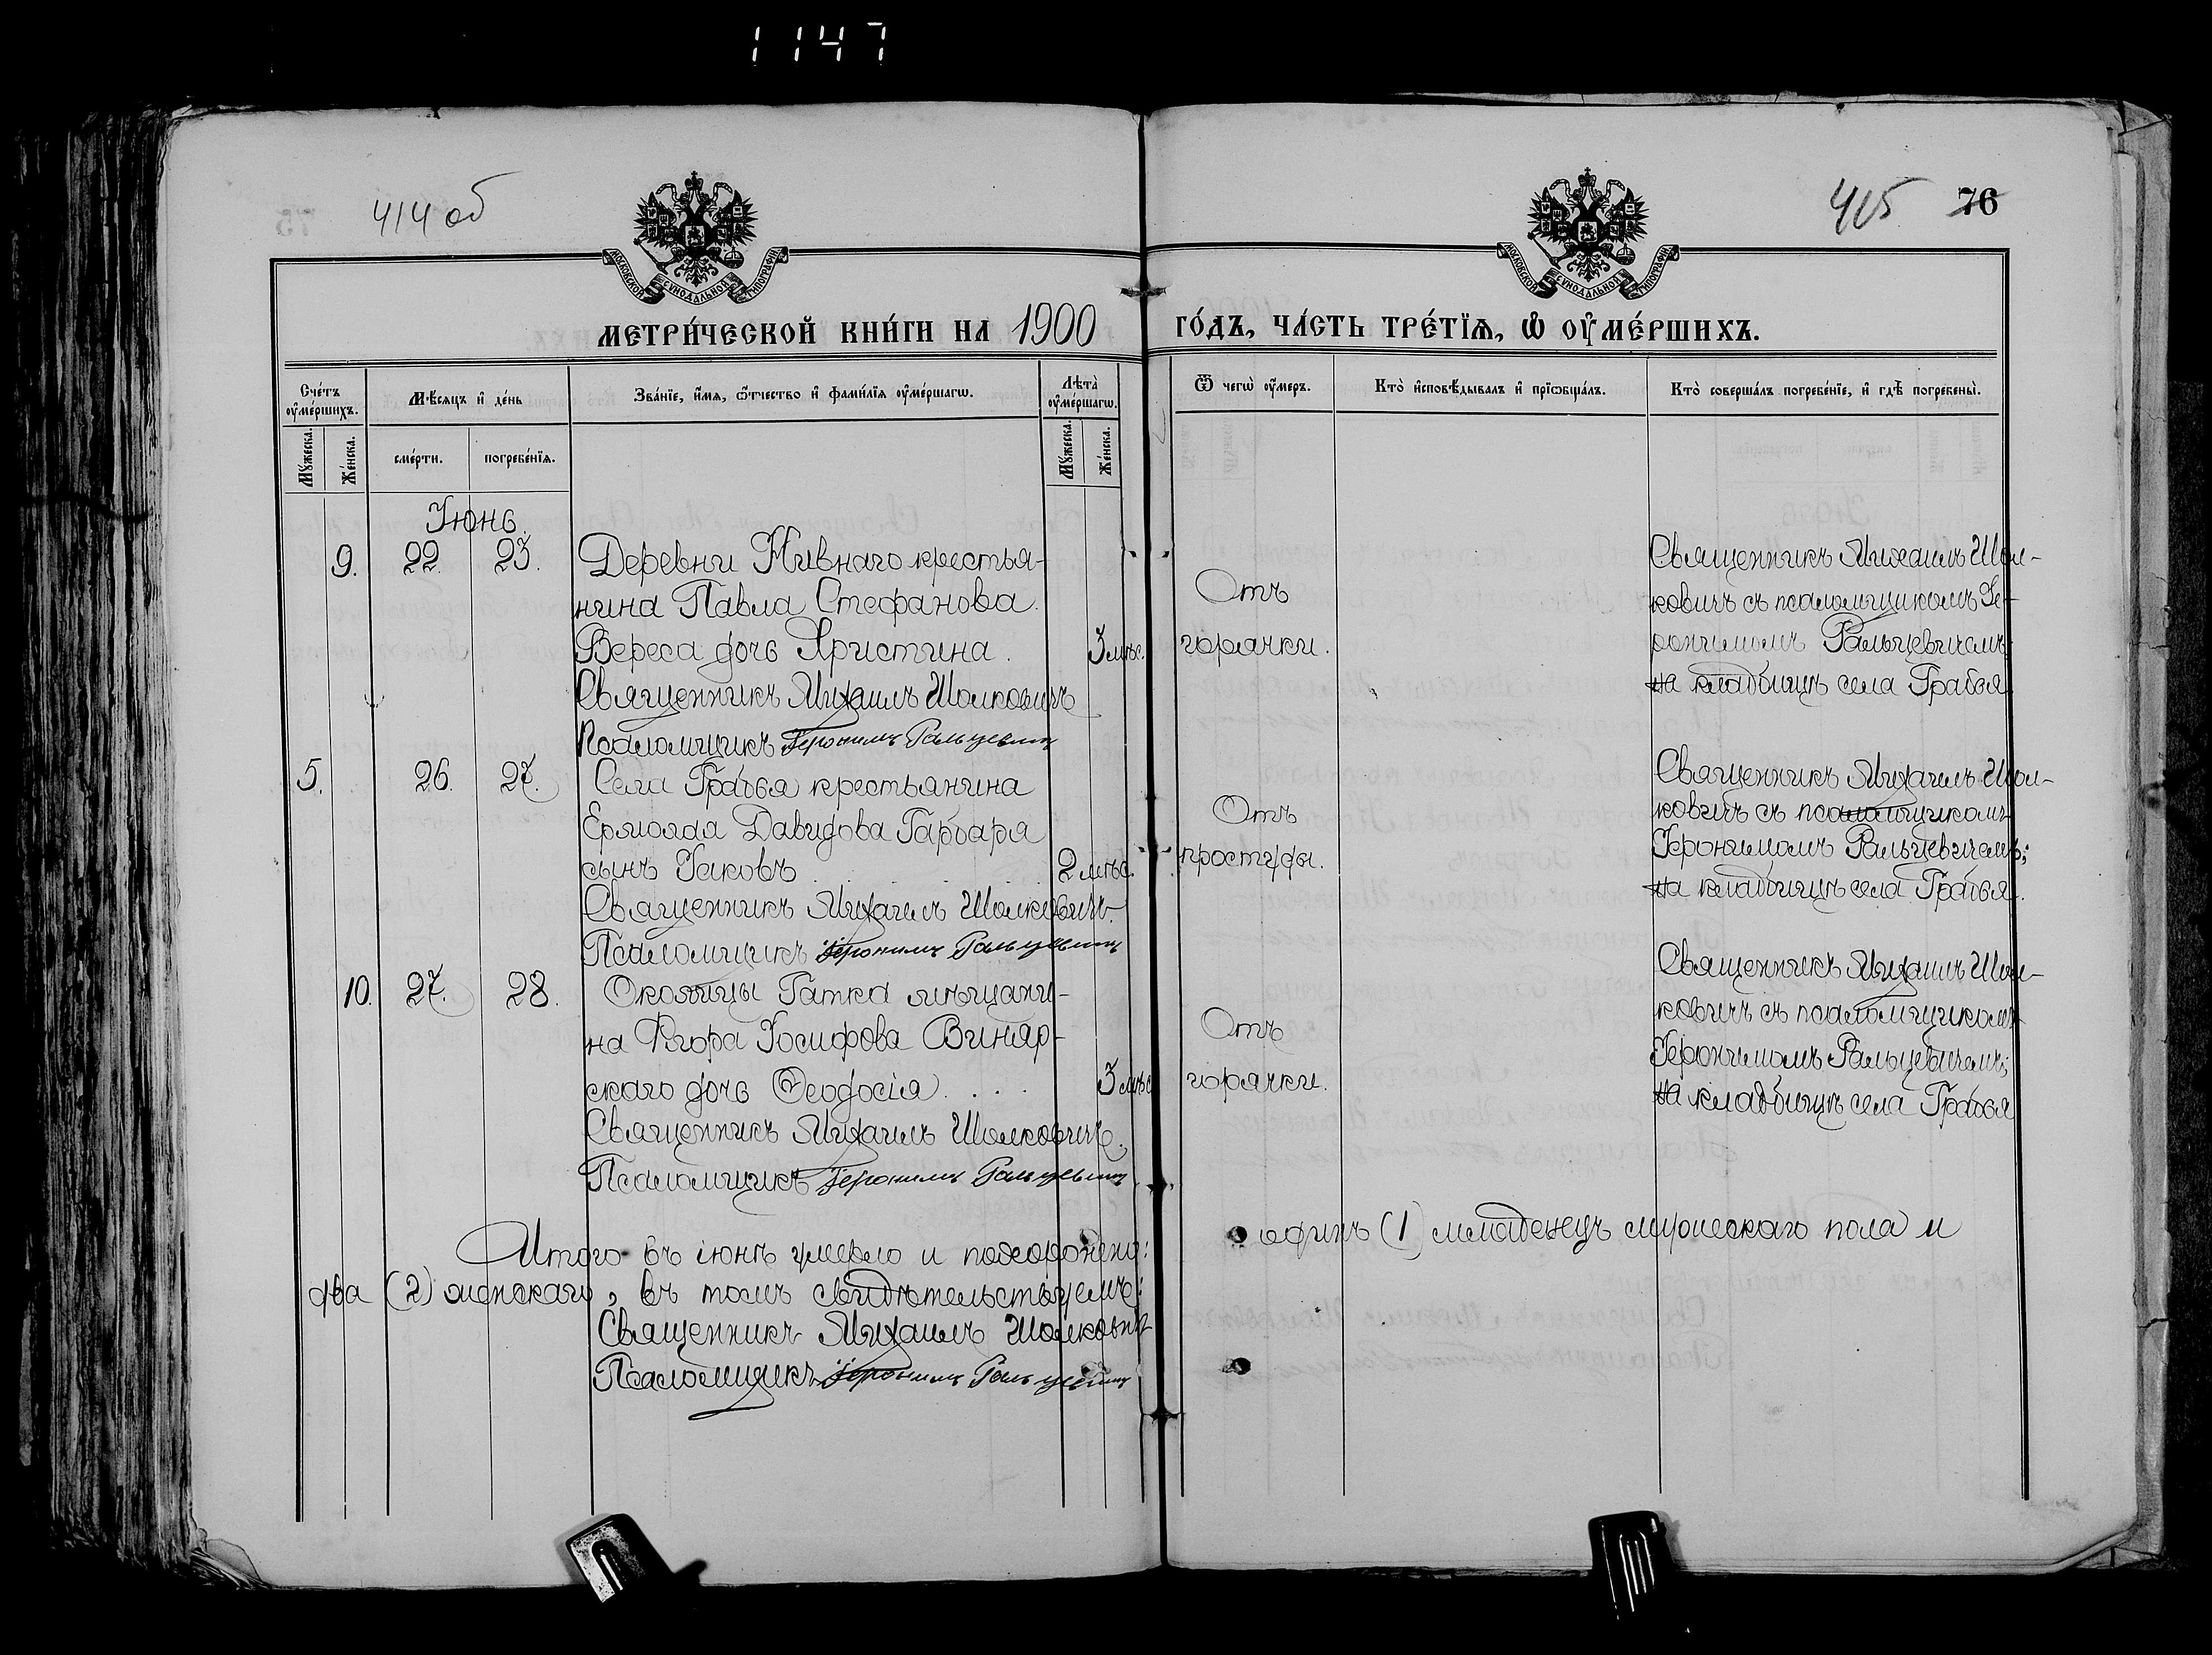 1147
414 об
415 76
МОСКОВСКОЙ СѴНОДАЛЬНОЙ ТИПОГРАФІИ
МОСКОВСКОЙ СѴНОДАЛЬНОЙ ТИПОГРАФІИ
МЕТРИ́ЧЕСКОЙ КНИ́ГИ НА 1900 ГО́ДЪ, ЧА́СТЬ ТРЕ́ТЇѦ, Ѡ҆ ОУ҆МЕ́РШИХЪ.
Сче́тъ оу҆ме́ршихъ.
Мѣ́сѧцъ и҆ де́нь
Зва́нїе, и҆́мѧ, ѻ҆́тчество и҆ фами́лїѧ оу҆ме́ршагѡ.
Лѣта̀ оу҆ме́ршагѡ.
Ѿ чегѡ̀ оу҆́меръ.
Кто̀ и҆сповѣ́дывалъ и҆ прїѡбща́лъ.
Кто̀ соверша́лъ погребе́нїе, и҆ гдѣ̀ погребены̀.
Мꙋ́жеска.
Же́нска.
сме́рти.
погребе́нїѧ.
Мꙋ́жеска.
Же́нска.
Іюнь.
9. 22. 23. Деревни Нивнаго крестья-
нина Павла Стефанова
Вереса дочь Христина. 3 мѣс.
Священникъ Михаилъ Шолковичъ
Псаломщикъ Іеронимъ Ральцевичъ
Отъ
горячки.
Священникъ Михаилъ Шол-
ковичъ съ псаломщикомъ Іе-
ронимомъ Ральцевичемъ;
на кладбищѣ села Грабья
5. 26. 27. Села Грабья крестьянина
Ермолая Давидова Гарбаря
сынъ Іаковъ 2 мѣс.
Священникъ Михаилъ Шолковичъ.
Псаломщикъ Іеронимъ Ральцевичъ
Отъ
простуды.
Священникъ Михаилъ Шол-
ковичъ съ псаломщикомъ
Іеронимомъ Ральцевичемъ;
на кладбищѣ села Грабья.
10. 27. 28. Околицы Гатка мѣщани-
на Егора Іосифова Виняр-
скаго дочь Ѳеодосія. 3 мѣс
Священникъ Михаилъ Шолковичъ.
Псаломщикъ Іеронимъ Ральцевичъ
Отъ
горячки.
Священникъ Михаилъ Шол-
ковичъ съ псаломщикомъ
Іеронимомъ Ральцевичемъ;
на кладбищѣ села Грабья
Итого въ іюнѣ умерло и похоронено: одинъ (1) младенецъ мужескаго пола и
два (2) женскаго, въ томъ свидѣтельствуемъ:
Священникъ Михаилъ Шолковичъ
Псаломщикъ Іеронимъ Ральцевичъ